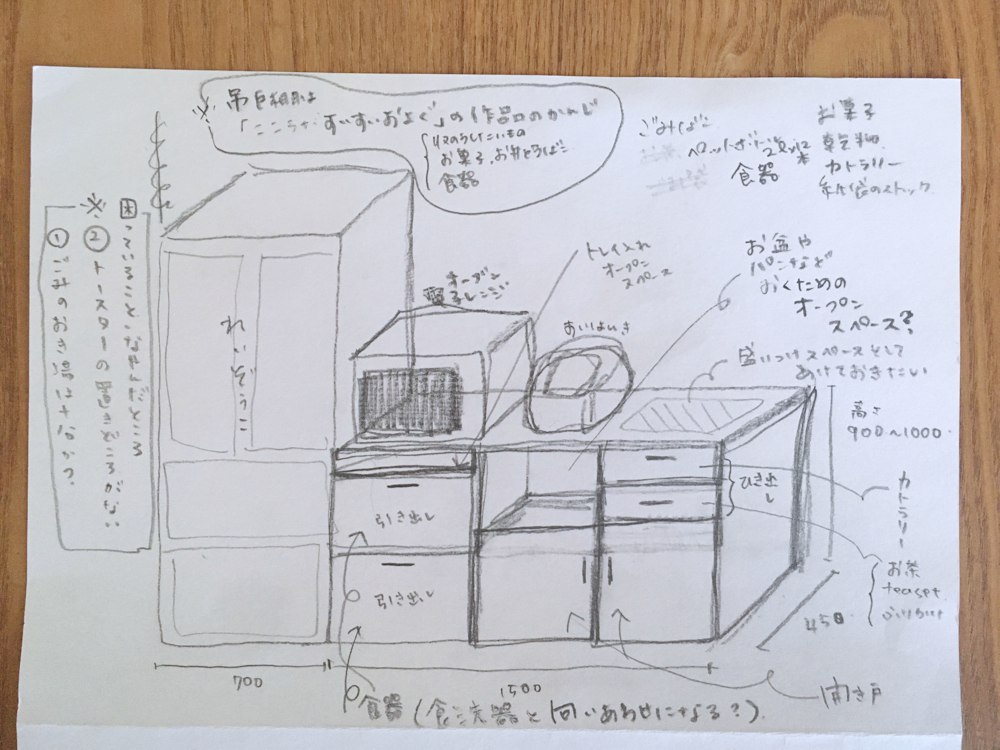 ※ 吊戸棚は
「ここちかすいすいおよぐ」の作品のかんじ
収のうしたいもの
お菓子、お弁とうばこ
食器
ごみばこ
ペットボトル
食器
お菓子
乾物
カトラリー
紙袋のストック
困っていること・なやんだところ
※② トースターの置きどころがない
① ごみのおき場はナなかつ?
れいぞうこ
オーブン
電子レンジ
トレイ入れ
オープン
スペース
すいはんき
お盆や
パンなど
おくための
オープン
スペース?
盛りつけスペースとして
あけておきたい
高さ
900〜1000
引き出し
引き出し
ひき出し
カトラリー
お茶
teaset
ふりかけ
450
開き戸
700
1500
食器(食洗器と向いあわせになる?)